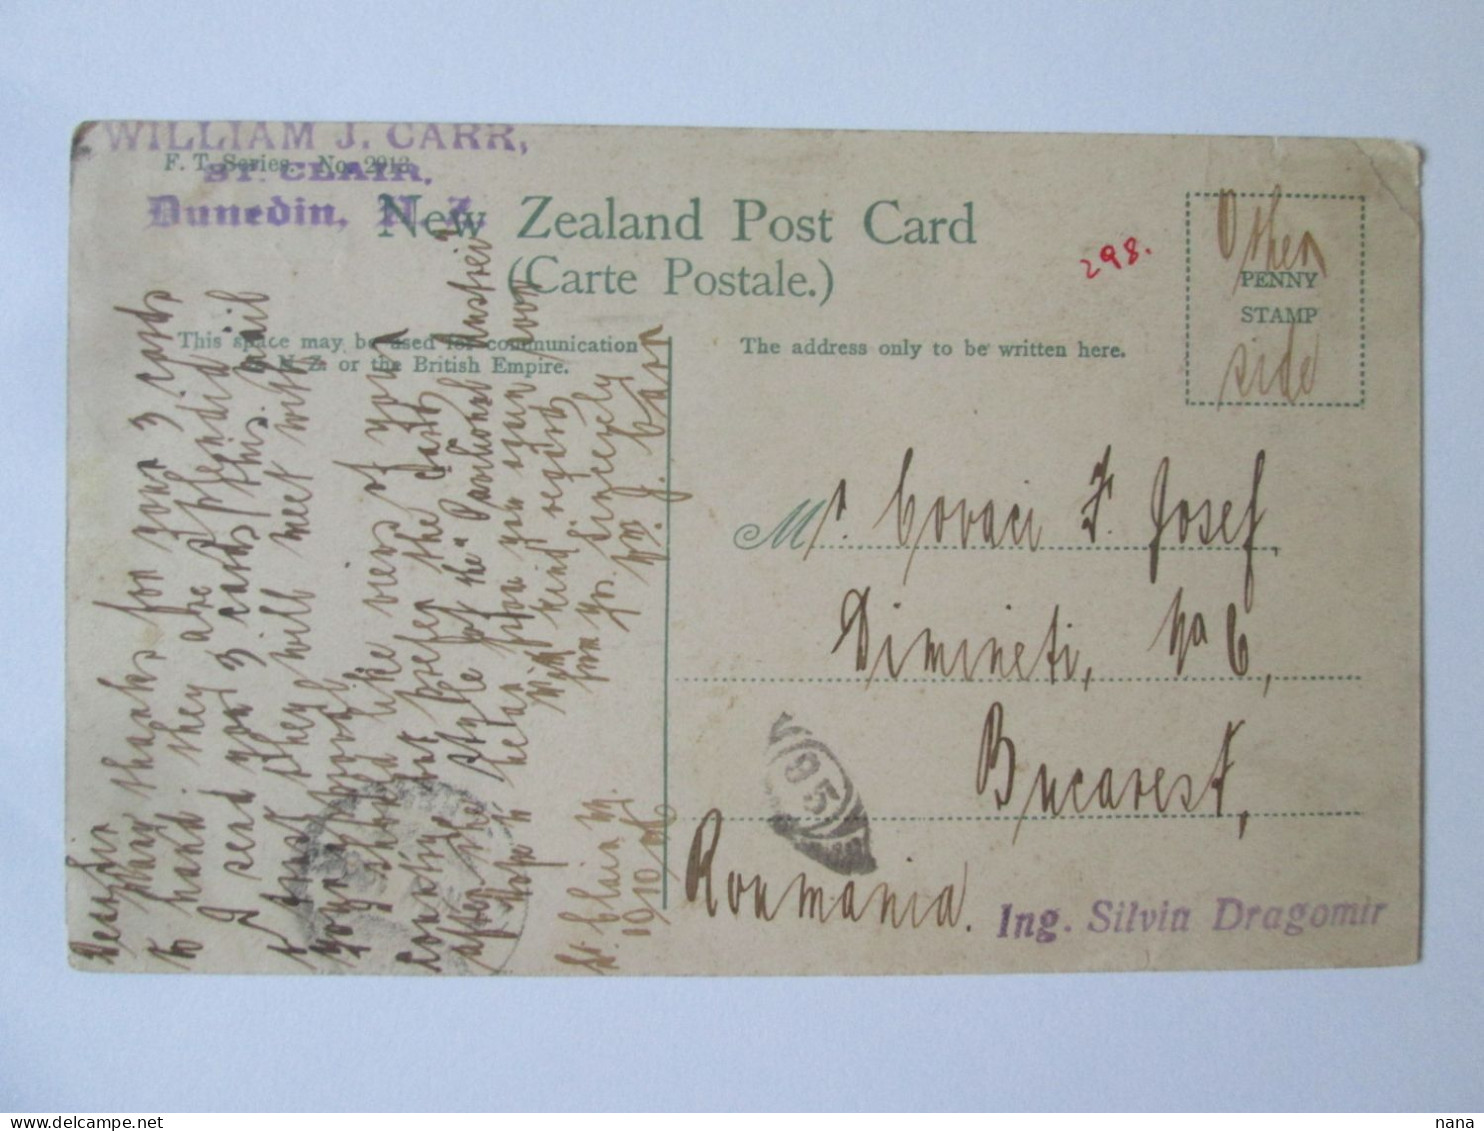 WILLIAM J. CARR,
F. T. Series. No. 2913
ST. CLAIR,
Dunedin, N. Z.
New Zealand Post Card
(Carte Postale.)
This space may be used for communication
in N. Z. or the British Empire.
The address only to be written here.
298.
Other
PENNY
STAMP
side
Mr. Covaci F. Josef,
Dimineti, No 6,
Bucarest,
Roumania.
95
Ing. Silvia Dragomir
Dear Sir
Many thanks for your 3 cards
to hand. they are splendid
I send you 3 cards this mail
& trust they will meet with
your approval
you should like views of your
country but prefer the cards
after the style of the "Pavilionul Austriei
Hope to hear from you again soon
With kind regards
from yrs. sincerely
Wm J. Carr
St. Clair N.Z.
10/10